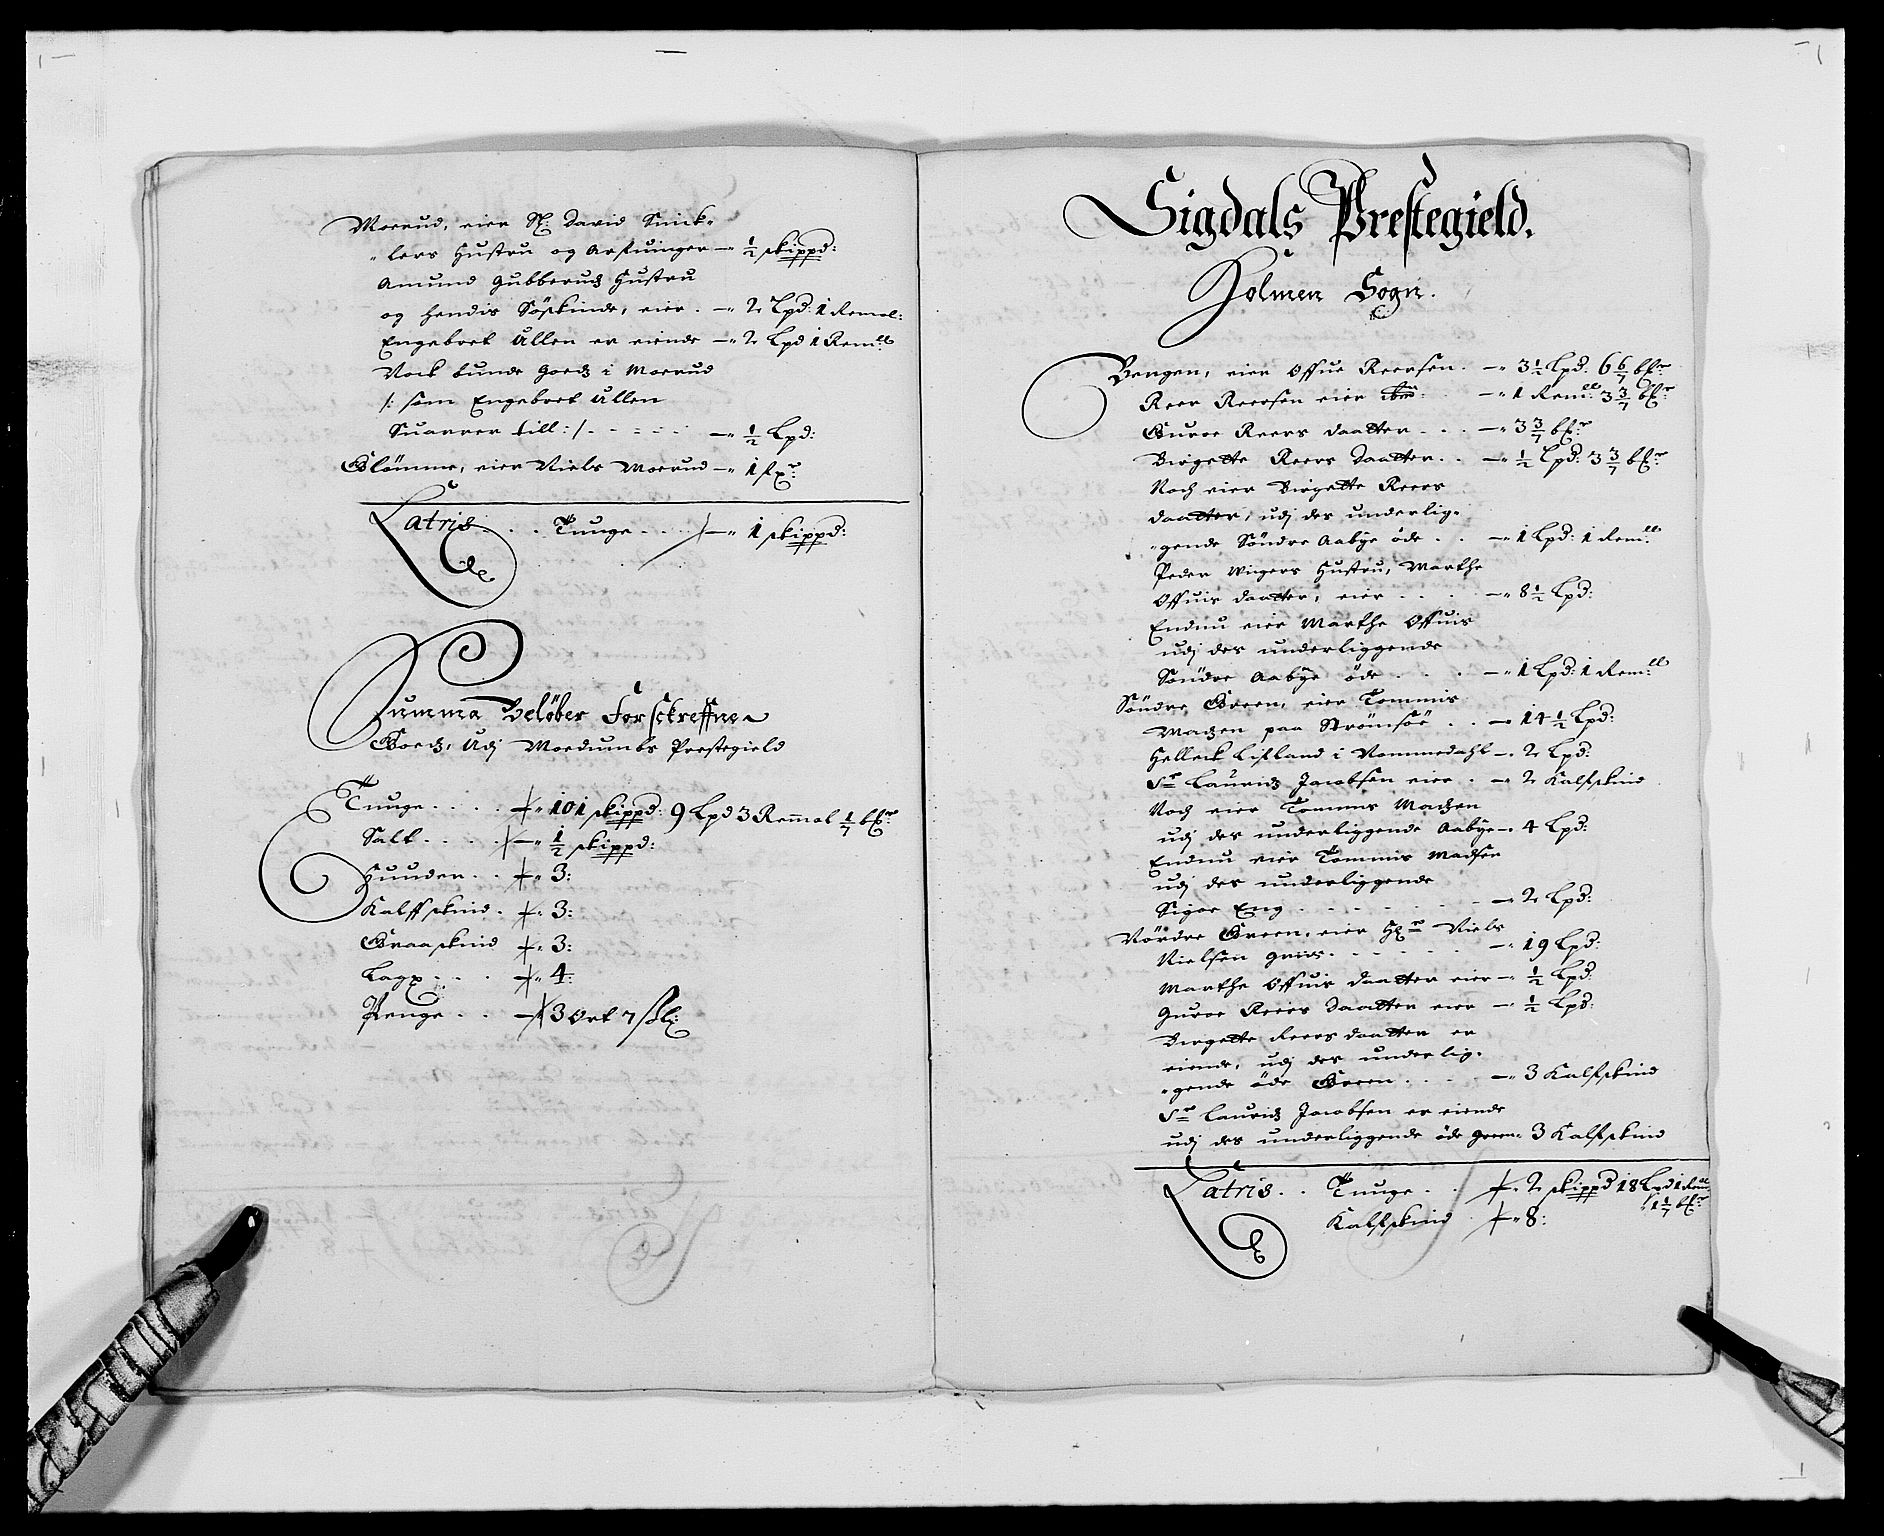 Moerud, eier Sl: David Snick-
-lers Hustru og Arfuinger — ½ skippd:
Amund Gubberudz Hustru
og hendis Söskinde, eier . — 2 Lpd: 1 Remol:
Engebret Ållen er eiende — 2 Lpd 1 Remll:
Nock bunde Goedz i Moerud
/: som Engebret Ållen
Suarrer till :/ - - - - - — ½ Lpd:
Glömme, eier Niels Moerud — 1 fxr:
Latris . . Tunge . . . — 1 skippd:
Summa Belöber Forsckreffne
Goedz, Udj Moedumbs Prestegield
Tunge . . . . 101 skippd: 9 Lpd 3 Remol 1/7 bfr:
Salt . . . . — ½ skippd:
Huuder . . 3:
Kalffskind . 3:
Graaskind 3:
Lagx . . . 4:
Penge . . — 3 Ort 7 sk:
Sigdals Prestegield.
Holmen Sogn.
Bergen, eier Offue Reersen . — 3½ Lpd: 6 6/7 bfr:
Reer Reersen eier ibm: — 1 Remll: 3 3/7 bfr:
Guroe Reers daatter . . . — 3 3/7 bfr:
Birgette Reers Daatter . . — ½ Lpd: 3 3/7 bfr:
Noch eier Birgette Reers
daatter, udj des underlig-
-gende Söndre Aabye öde . . — 1 Lpd: 1 Remll:
Peder Wigers Hustru, Marthe
Offuis daatter, eier . . . . — 8½ Lpd:
Endnu eier Marthe Offuis
udj des underliggende
Söndre Aabye öde . . . . — 1 Lpd: 1 Remll:
Söndre Green, eier Tommis
Madzen paa Strömsöe . . — 14½ Lpd:
Helleck Lifland i Nommedahl — 2 Lpd:
Sr Lauridz Jacobsen eier . — 2 Kalfskind
Noch eier Tommis Madzen
udj des underliggende Aabye — 4 Lpd:
Endnu eier Tommis Madsen
udj des underliggende
Sigoe Eng - - - - - — 2 Lpd:
Nördre Green, eier Hr Niels
Nielsen Griis . - - - - - — 19 Lpd:
Marthe Offuis daatter eier — ½ Lpd:
Guroe Reers Daatter eier — ½ Lpd:
Birgette Reers daatter er
eiende, udj des underlig-
-gende öde Green . . . . — 3 Kalfskind
Sr Lauridz Jacobsen er eiende
udj des underliggende öde Green - 3 Kalfskind
Latris . . Tunge . . 2 skippd 18 Lpd 1 Remll
1 1/7 bfr:
Kalfskind 8: